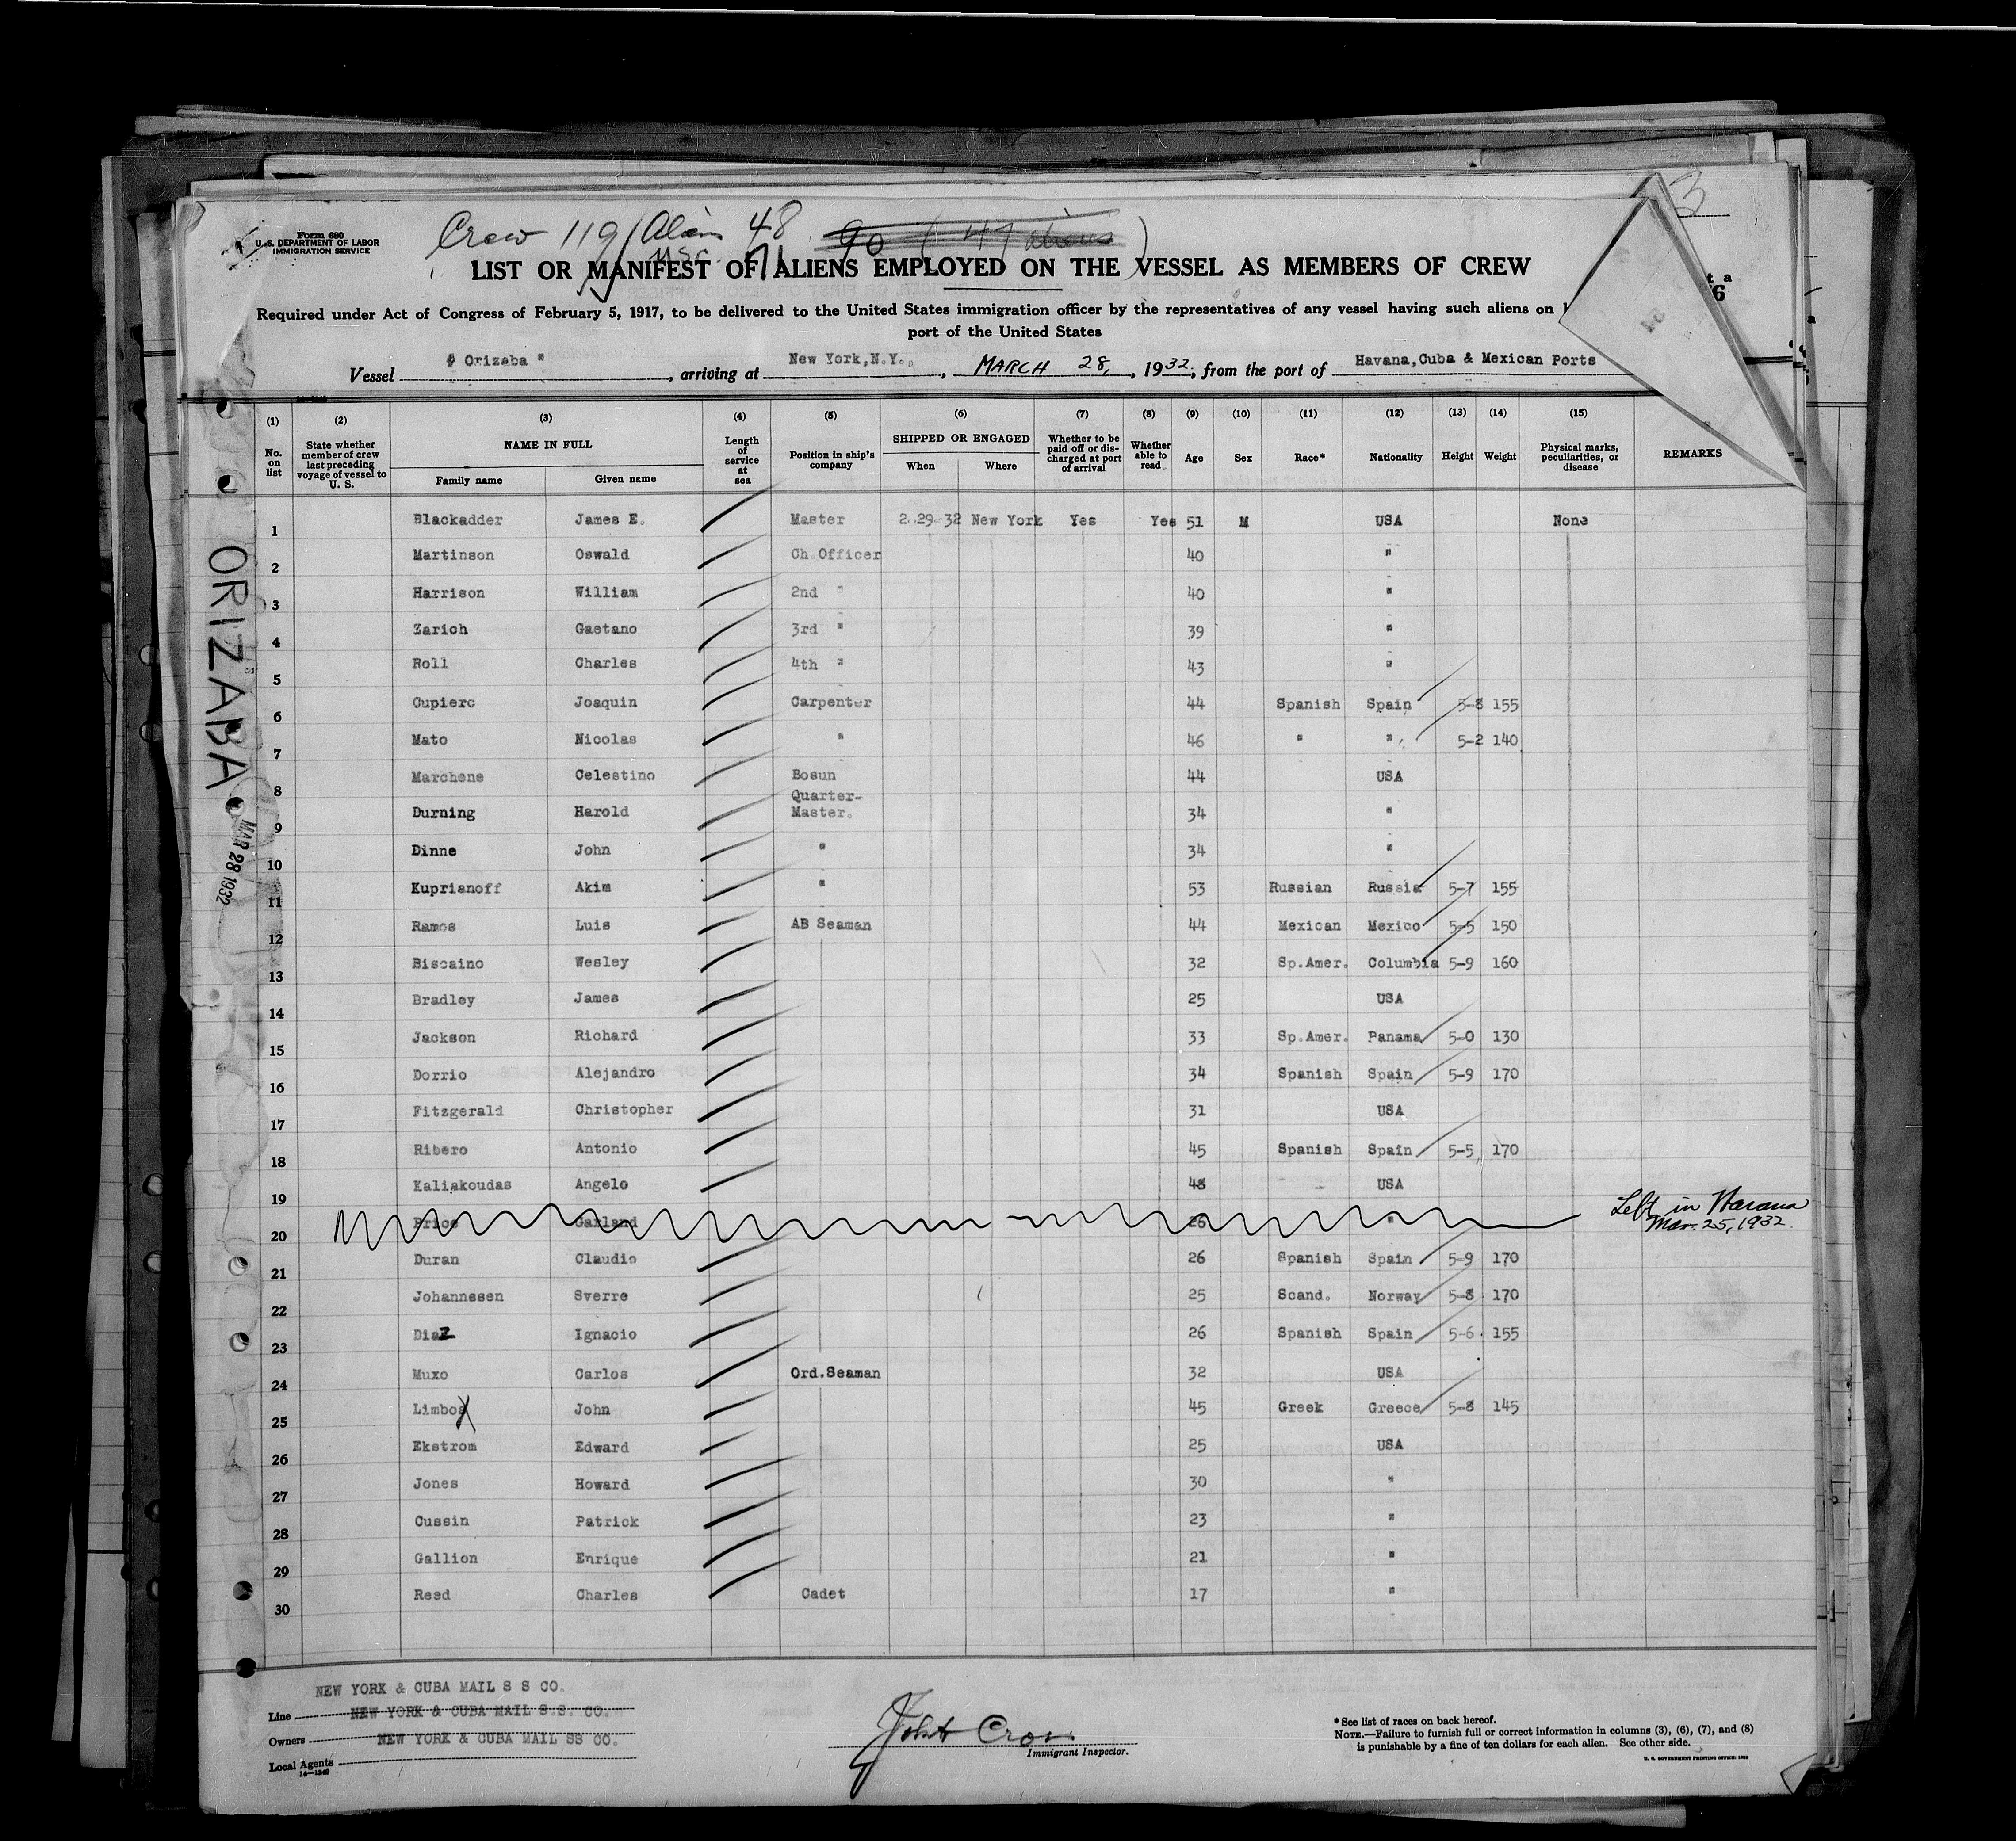 Crew 119 Alien 48 90 ( 47 aliens )
USC. 71
3
Form 680
U. S. DEPARTMENT OF LABOR
IMMIGRATION SERVICE
LIST OR MANIFEST OF ALIENS EMPLOYED ON THE VESSEL AS MEMBERS OF CREW
Required under Act of Congress of February 5, 1917, to be delivered to the United States immigration officer by the representatives of any vessel having such aliens on
port of the United States
Vessel " Orizaba ", arriving at New York, N.Y., MARCH 28, 1932, from the port of Havana, Cuba & Mexican Ports
(1) (2) (3) (4) (5) (6) (7) (8) (9) (10) (11) (12) (13) (14) (15)
No. on list State whether member of crew last preceding voyage of vessel to U. S. NAME IN FULL Length of service at sea Position in ship's company SHIPPED OR ENGAGED Whether to be paid off or discharged at port of arrival Whether able to read Age Sex Race* Nationality Height Weight Physical marks, peculiarities, or disease REMARKS
Family name Given name When Where
1 Blackadder James E. Master 2.29.32 New York Yes Yes 51 M USA None
2 Martinson Oswald Ch.Officer 40 "
3 Harrison William 2nd " 40 "
4 Zarich Gaetano 3rd " 39 "
5 Roll Charles 4th " 43 "
6 Cupierc Joaquin Carpenter 44 Spanish Spain 5-8 155
7 Mato Nicolas " 46 " " 5-2 140
8 Marchene Celestino Bosun 44 USA
9 Durning Harold Quarter-Master. 34 "
10 Dinne John " 34 "
11 Kuprianoff Akim " 53 Russian Russia 5-7 155
12 Ramos Luis AB Seaman 44 Mexican Mexico 5-5 150
13 Biscaino Wesley 32 Sp.Amer. Columbia 5-9 160
14 Bradley James 25 USA
15 Jackson Richard 33 Sp.Amer. Panama 5-0 130
16 Dorrio Alejandro 34 Spanish Spain 5-9 170
17 Fitzgerald Christopher 31 USA
18 Ribero Antonio 45 Spanish Spain 5-5 170
19 Kaliakoudas Angelo 48 USA
20 Price Garland 26 " Left in Havana Mar. 25, 1932.
21 Duran Claudio 26 Spanish Spain 5-9 170
22 Johannesen Sverre 25 Scand. Norway 5-8 170
23 Diaz Ignacio 26 Spanish Spain 5-6 155
24 Muxo Carlos Ord.Seaman 32 USA
25 Limbos John 45 Greek Greece 5-8 145
26 Ekstrom Edward 25 USA
27 Jones Howard 30 "
28 Cussin Patrick 23 "
29 Gallion Enrique 21 "
30 Reed Charles Cadet 17 "
ORIZABA
MAR 28 1932
NEW YORK & CUBA MAIL S S CO.
Line NEW YORK & CUBA MAIL S.S. CO.
Owners NEW YORK & CUBA MAIL SS CO.
Local Agents
14—1240
Immigrant Inspector.
*See list of races on back hereof.
NOTE.—Failure to furnish full or correct information in columns (3), (6), (7), and (8)
is punishable by a fine of ten dollars for each alien. See other side.